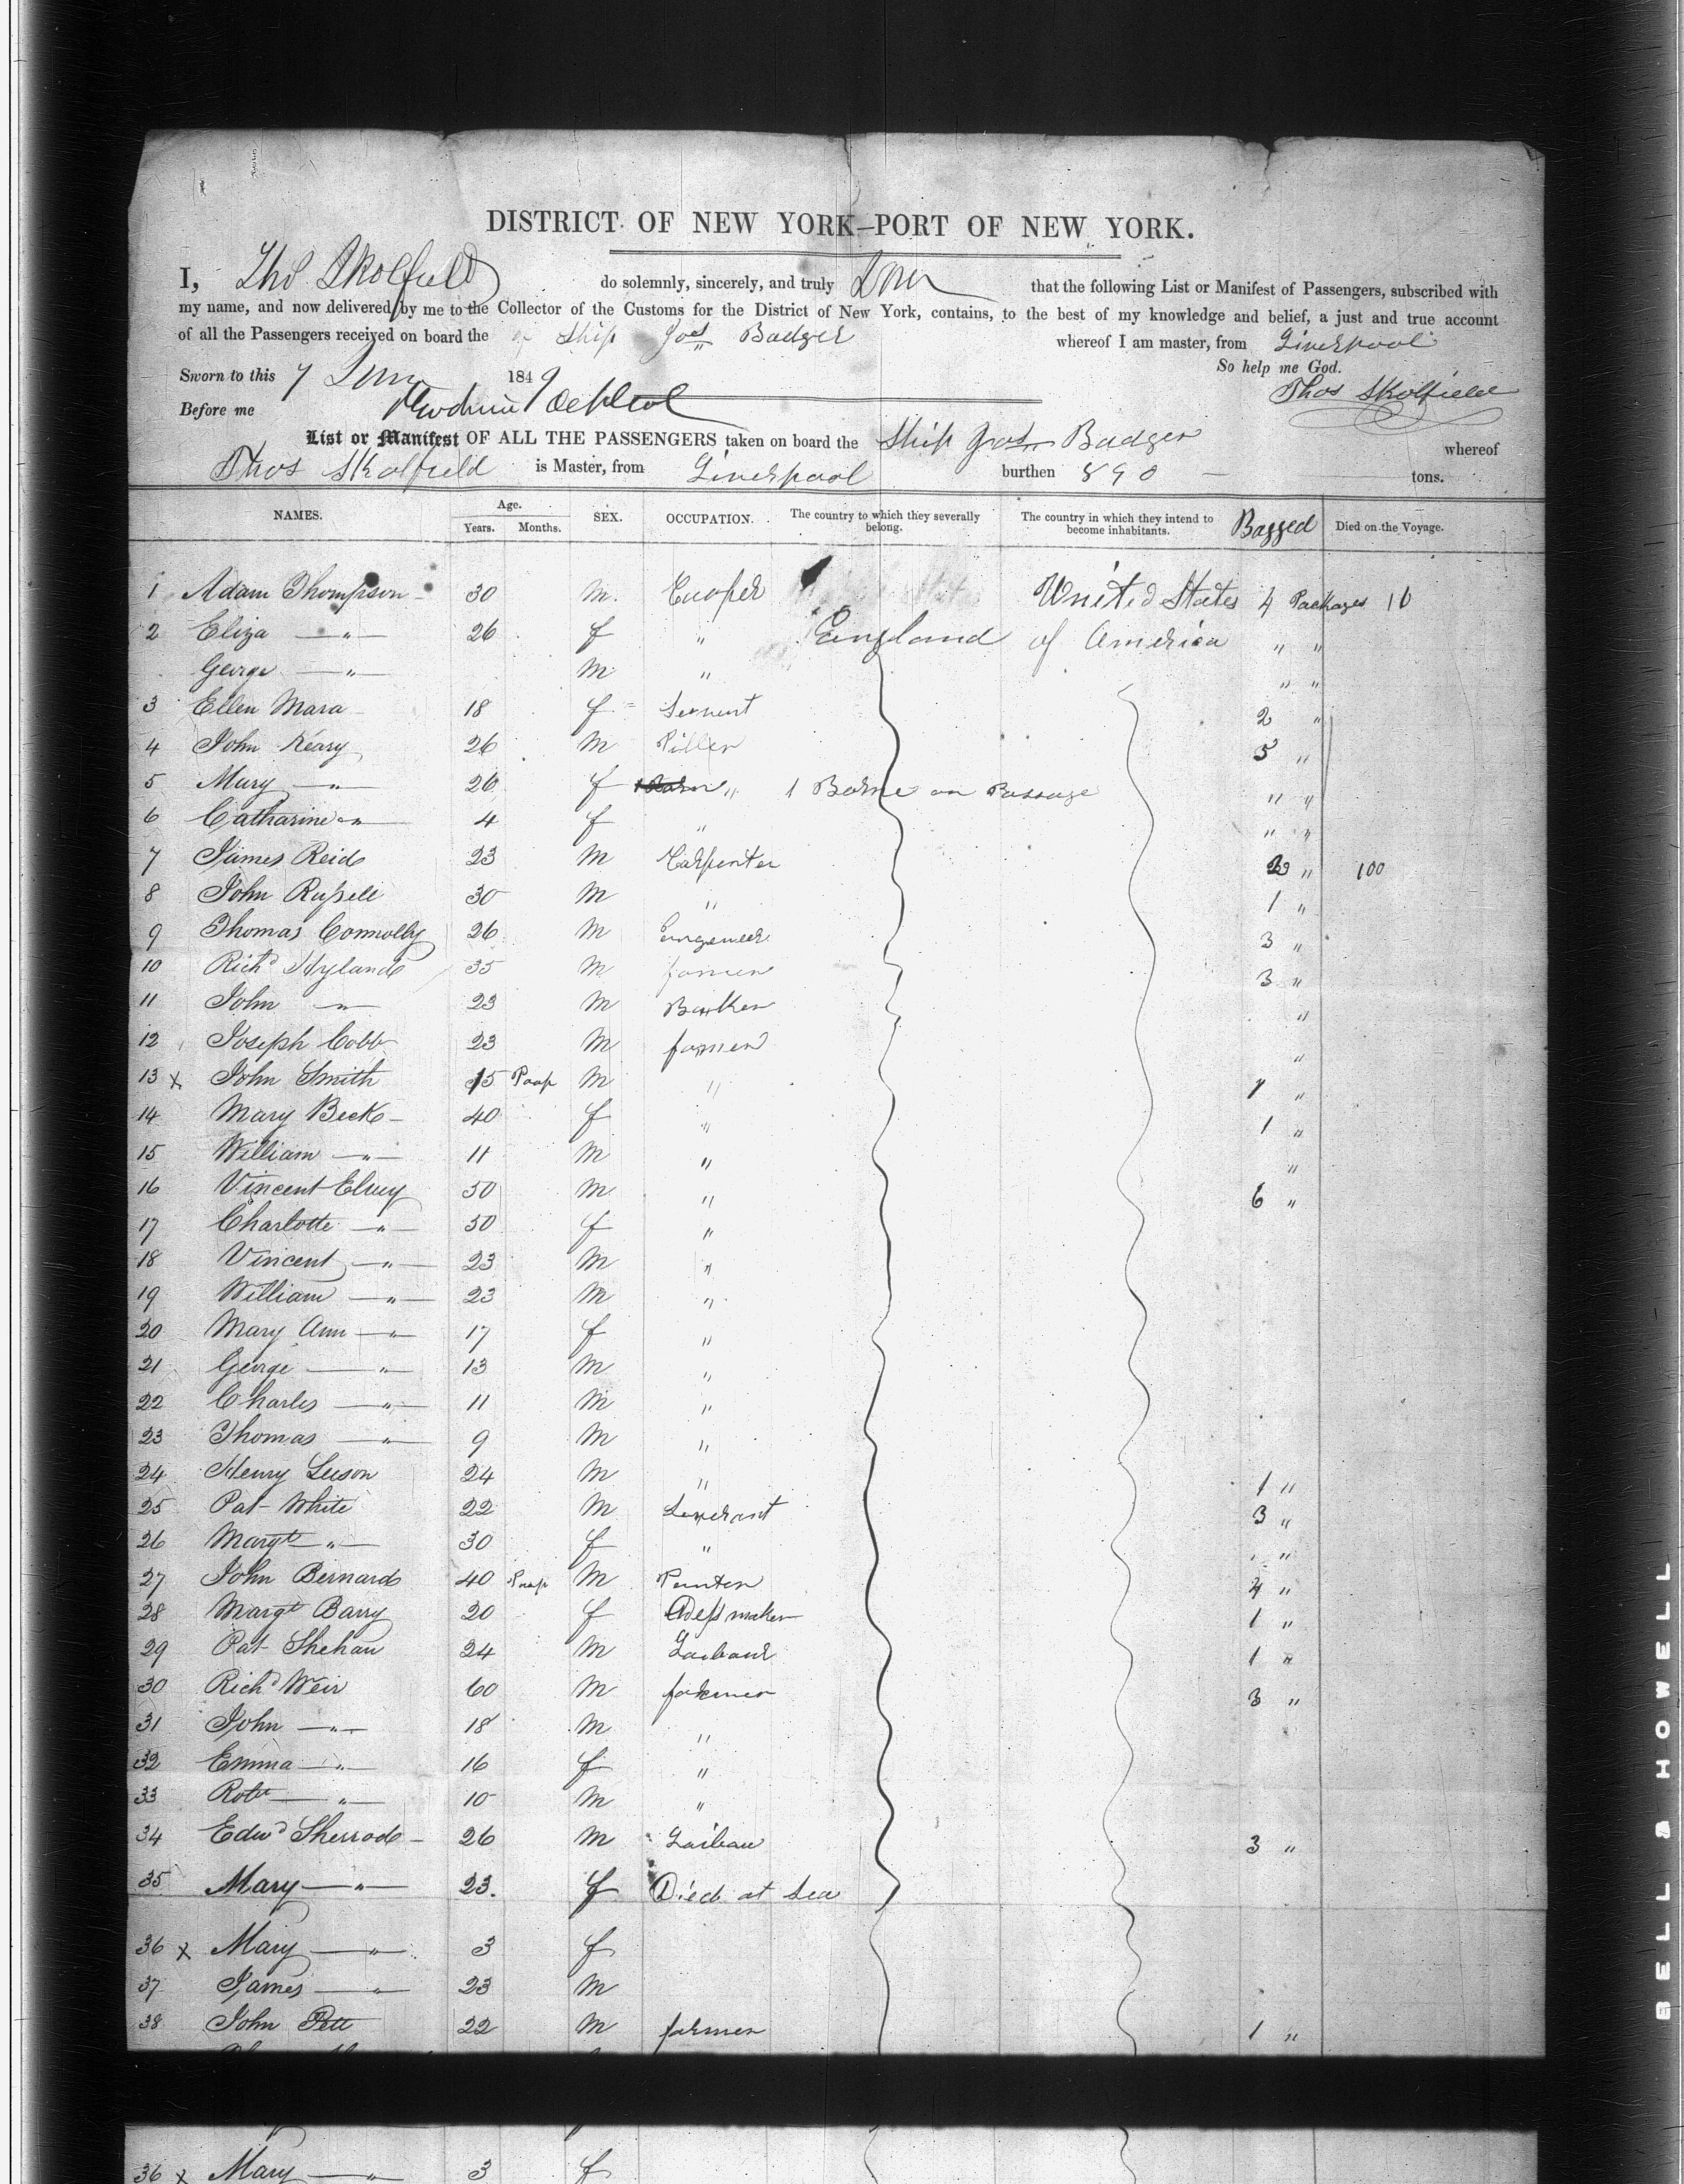 DISTRICT OF NEW YORK—PORT OF NEW YORK.
I, Thos Skolfield do solemnly, sincerely, and truly that the following List or Manifest of Passengers, subscribed with
my name, and now delivered by me to the Collector of the Customs for the District of New York, contains, to the best of my knowledge and belief, a just and true account
of all the Passengers received on board the Ship Jos Badger whereof I am master, from Liverpool
So help me God.
Sworn to this 7 1849 Thos Skolfield
Before me
List or Manifest OF ALL THE PASSENGERS taken on board the Ship Jos Badger whereof
Thos Skolfield is Master, from Liverpool burthen 890 — tons.
NAMES. Age. Years. Months. SEX. OCCUPATION. The country to which they severally belong. The country in which they intend to become inhabitants. Died on the Voyage.
1 Adam Thompson 30 M. Cooper United States 4 Packages 10
2 Eliza —"— 26 f " England of America " "
George —"— M " " "
3 Ellen Mara 18 f Servent 2 "
4 John Keary 26 M 5 "
5 Mary —"— 26 f " 1 Borne on Passage " "
6 Catharine —"— 4 f " " "
7 James Reid 23 M Carpenter 2 " 100
8 John Russell 30 M " 1 "
9 Thomas Connolly 26 M Engeneer 3 "
10 Richd Hyland 35 M farmer 3 "
11 John —"— 23 M "
12 Joseph Cobb 23 M farmer "
13 x John Smith 15 Poop M " 1 "
14 Mary Beck 40 f " 1 "
15 William —"— 11 M " "
16 Vincent Elvey 50 M " 6 "
17 Charlotte —"— 50 f "
18 Vincent —"— 23 M "
19 William —"— 23 M "
20 Mary Ann —"— 17 f "
21 George —"— 13 M "
22 Charles —"— 11 M "
23 Thomas —"— 9 M "
24 Henry Leeson 24 M " 1 "
25 Pat White 22 M Servant 3 "
26 Margt —"— 30 f " "
27 John Bernard 40 Poop M Painter 4 "
28 Margt Barry 20 f Dressmaker 1 "
29 Pat Shehan 24 M 1 "
30 Richd Weir 60 M farmer 3 "
31 John —"— 18 M "
32 Emma —"— 16 f "
33 Robt —"— 10 M "
34 Edwd Sherrod 26 M 3 "
35 Mary —"— 23. f Died at Sea
36 x Mary —"— 3 f
37 James —"— 23 M
38 John Pett 22 M farmer 1 "
36 x Mary —"— 3 f
BELL & HOWELL